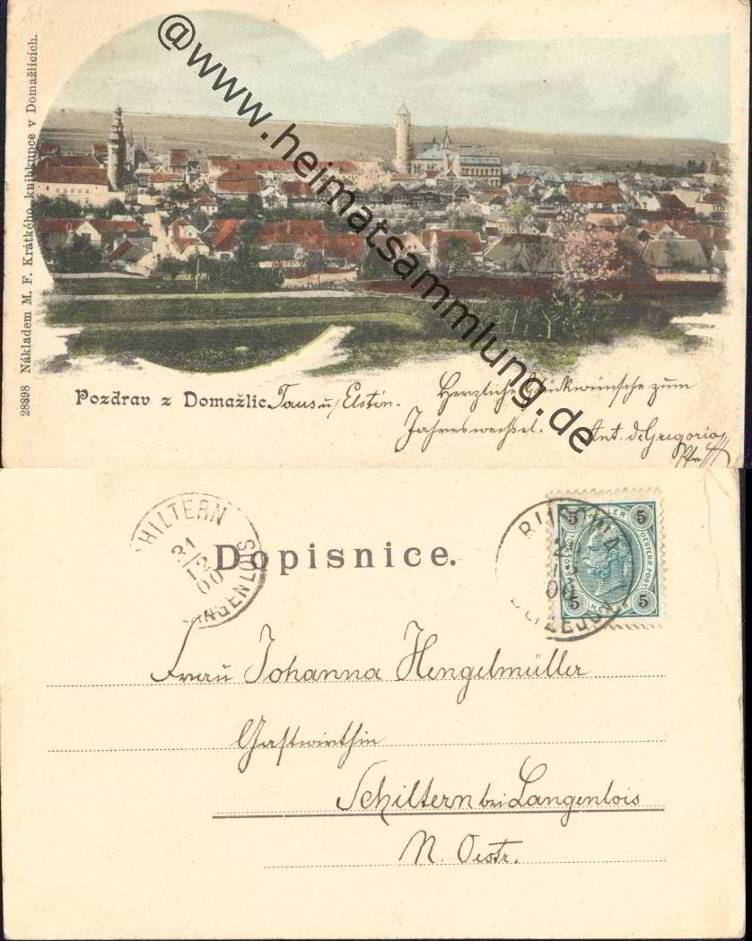 @www.heimatsammlung.de
28898 Nákladem M. F. Krátkého, knihkupce v Domažlicích.
Pozdrav z Domažlic. Taus u/ Elstin.
Herzliche Glückwünsche zum
Jahreswechsel. Ant. de Gregorio
SCHILTERN
31
12
00
LANGENLOIS
Dopisnice.
5 5
5 5
00
Frau Johanna Hengelmüller
Gastwirthin
Schiltern bei Langenlois
N. Oestr.